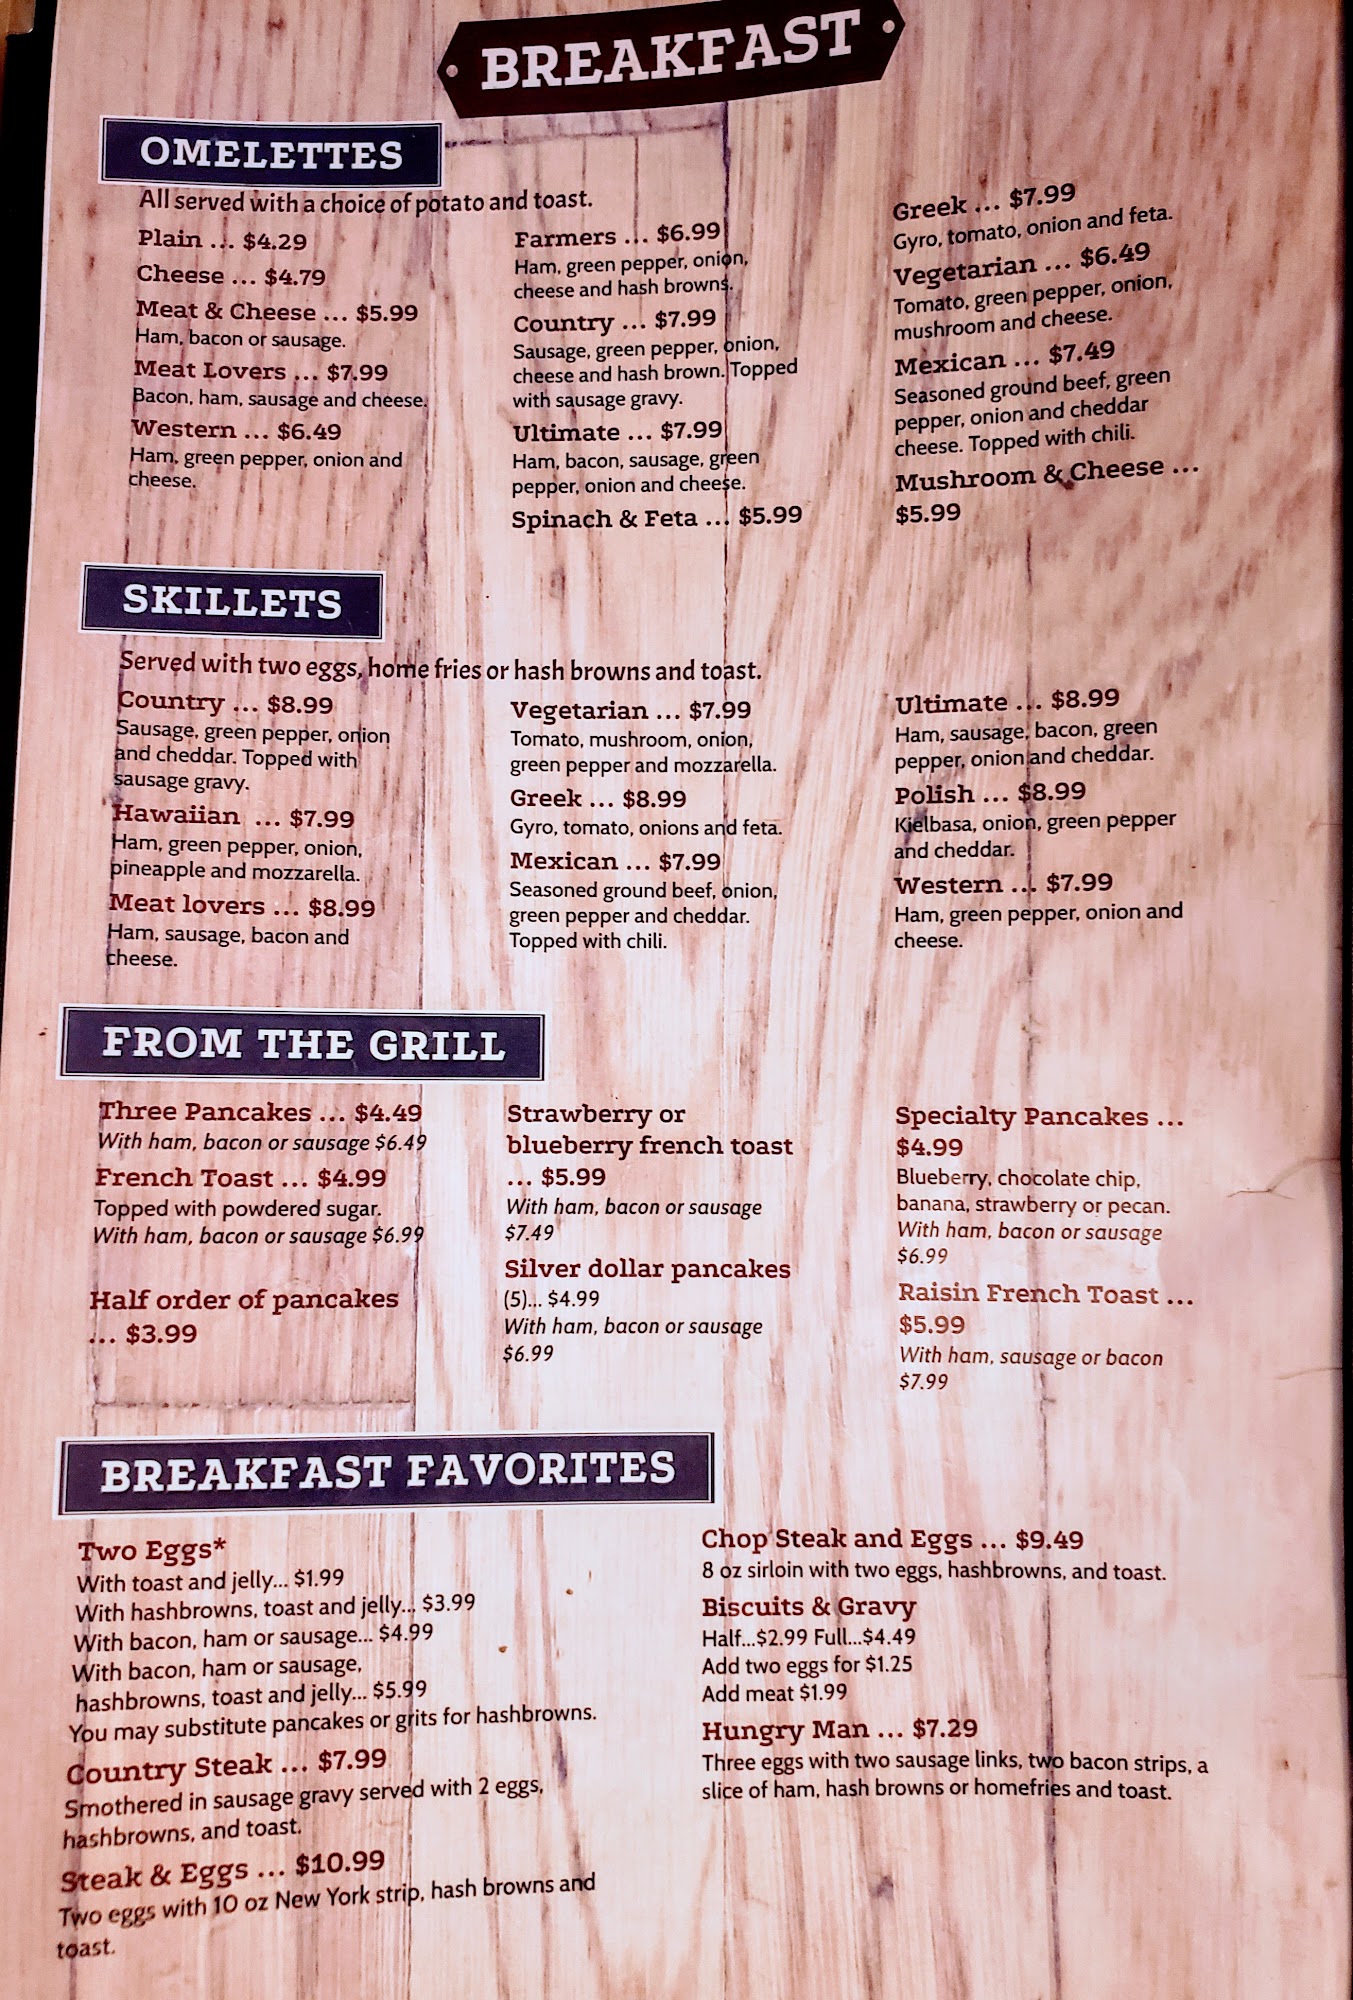 BREAKFAST
OMELETTES
All served with a choice of potato and toast.
Plain ... $4.29
Cheese ... $4.79
Meat & Cheese ... $5.99
Ham, bacon or sausage.
Meat Lovers ... $7.99
Bacon, ham, sausage and cheese.
Western ... $6.49
Ham, green pepper, onion and
cheese.
Farmers ... $6.99
Ham, green pepper, onion,
cheese and hash browns.
Country ... $7.99
Sausage, green pepper, onion,
cheese and hash brown. Topped
with sausage gravy.
Ultimate ... $7.99
Ham, bacon, sausage, green
pepper, onion and cheese.
Spinach & Feta ... $5.99
Greek ... $7.99
Gyro, tomato, onion and feta.
Vegetarian ... $6.49
Tomato, green pepper, onion,
mushroom and cheese.
Mexican ... $7.49
Seasoned ground beef, green
pepper, onion and cheddar
cheese. Topped with chili.
Mushroom & Cheese ...
$5.99
SKILLETS
Served with two eggs, home fries or hash browns and toast.
Country ... $8.99
Sausage, green pepper, onion
and cheddar. Topped with
sausage gravy.
Hawaiian ... $7.99
Ham, green pepper, onion,
pineapple and mozzarella.
Meat lovers ... $8.99
Ham, sausage, bacon and
cheese.
Vegetarian ... $7.99
Tomato, mushroom, onion,
green pepper and mozzarella.
Greek ... $8.99
Gyro, tomato, onions and feta.
Mexican ... $7.99
Seasoned ground beef, onion,
green pepper and cheddar.
Topped with chili.
Ultimate ... $8.99
Ham, sausage, bacon, green
pepper, onion and cheddar.
Polish ... $8.99
Kielbasa, onion, green pepper
and cheddar.
Western ... $7.99
Ham, green pepper, onion and
cheese.
FROM THE GRILL
Three Pancakes ... $4.49
With ham, bacon or sausage $6.49
French Toast ... $4.99
Topped with powdered sugar.
With ham, bacon or sausage $6.99
Half order of pancakes
... $3.99
Strawberry or
blueberry french toast
... $5.99
With ham, bacon or sausage
$7.49
Silver dollar pancakes
(5)... $4.99
With ham, bacon or sausage
$6.99
Specialty Pancakes ...
$4.99
Blueberry, chocolate chip,
banana, strawberry or pecan.
With ham, bacon or sausage
$6.99
Raisin French Toast ...
$5.99
With ham, sausage or bacon
$7.99
BREAKFAST FAVORITES
Two Eggs*
With toast and jelly... $1.99
With hashbrowns, toast and jelly... $3.99
With bacon, ham or sausage... $4.99
With bacon, ham or sausage,
hashbrowns, toast and jelly... $5.99
You may substitute pancakes or grits for hashbrowns.
Country Steak ... $7.99
Smothered in sausage gravy served with 2 eggs,
hashbrowns, and toast.
Steak & Eggs ... $10.99
Two eggs with 10 oz New York strip, hash browns and
toast.
Chop Steak and Eggs ... $9.49
8 oz sirloin with two eggs, hashbrowns, and toast.
Biscuits & Gravy
Half...$2.99 Full...$4.49
Add two eggs for $1.25
Add meat $1.99
Hungry Man ... $7.29
Three eggs with two sausage links, two bacon strips, a
slice of ham, hash browns or homefries and toast.